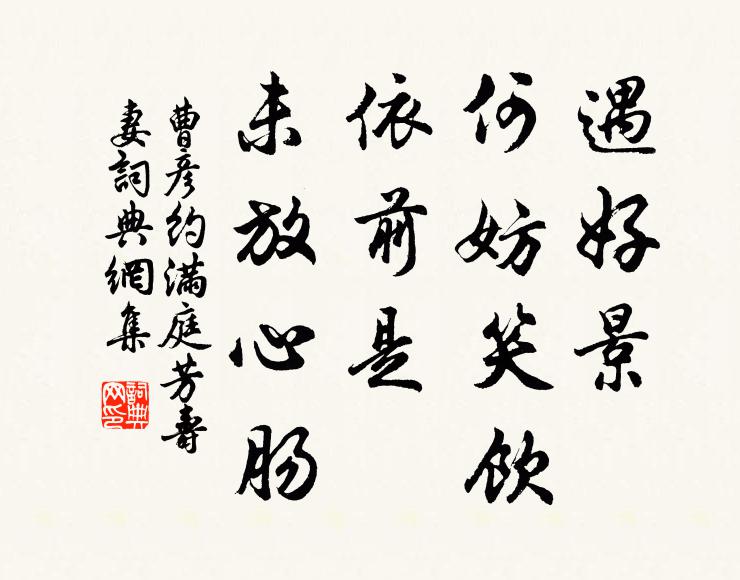 遇好景
何妨笑飲
依前是
未放心肠
曹彥约满庭芳壽
妻詞典網集
詞典网印